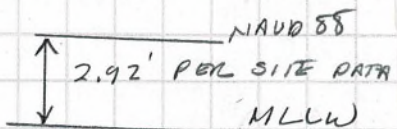 NAVD 88
2.92' PER SITE DATA
MLLW